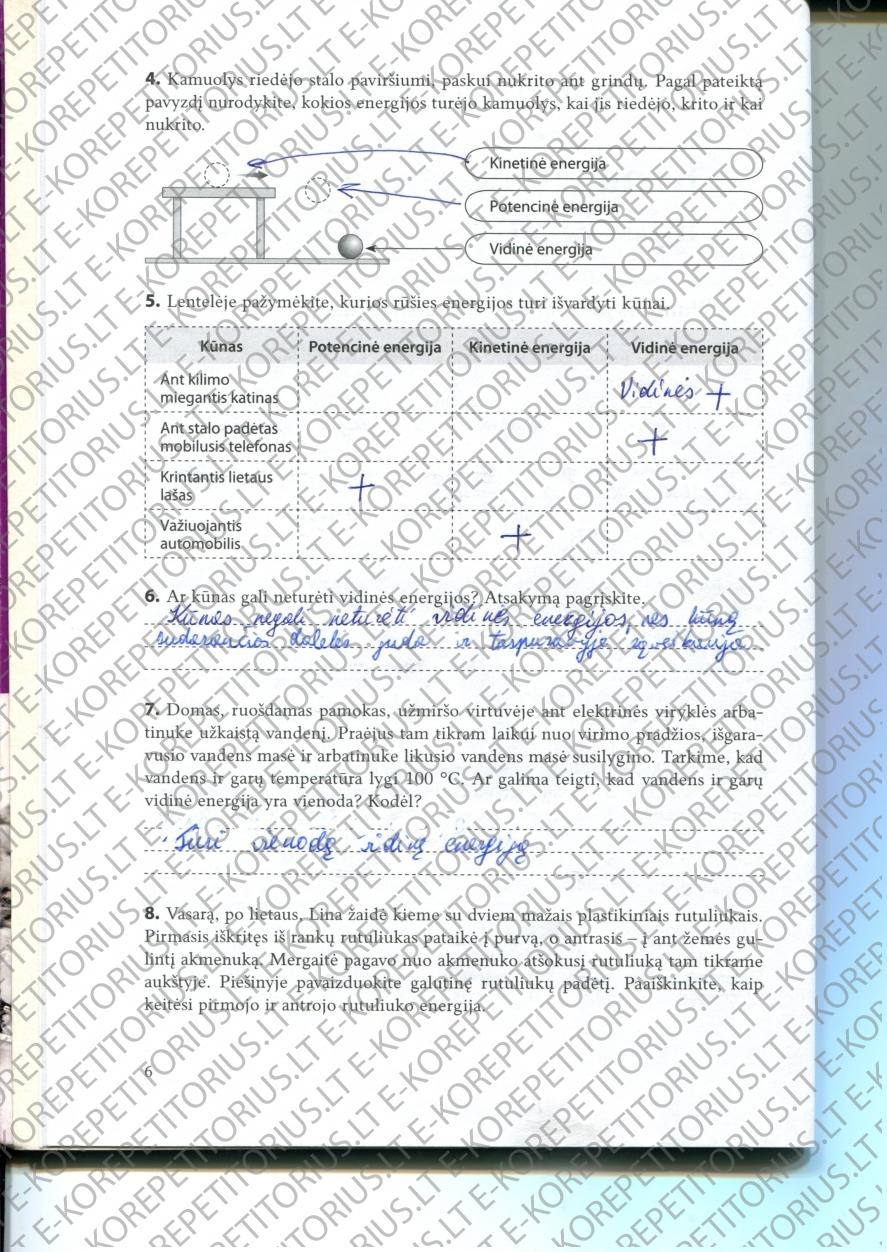 4. Kamuolys riedėjo stalo paviršiumi, paskui nukrito ant grindų. Pagal pateiktą
pavyzdį nurodykite, kokios energijos turėjo kamuolys, kai jis riedėjo, krito ir kai
nukrito.
Kinetinė energija
Potencinė energija
Vidinė energija
5. Lentelėje pažymėkite, kurios rūšies energijos turi išvardyti kūnai.
Kūnas Potencinė energija Kinetinė energija Vidinė energija
Ant kilimo
miegantis katinas
Vidinės +
Ant stalo padėtas
mobilusis telefonas
+
Krintantis lietaus
lašas
+
Važiuojantis
automobilis
+
6. Ar kūnas gali neturėti vidinės energijos? Atsakymą pagrįskite.
Kūnas negali neturėti vidinės energijos, nes kūną
sudarančios dalelės juda ir tarpusavyje sąveikauja
7. Domas, ruošdamas pamokas, užmiršo virtuvėje ant elektrinės viryklės arba-
tinuke užkaistą vandenį. Praėjus tam tikram laikui nuo virimo pradžios, išgara-
vusio vandens masė ir arbatinuke likusio vandens masė susilygino. Tarkime, kad
vandens ir garų temperatūra lygi 100 °C. Ar galima teigti, kad vandens ir garų
vidinė energija yra vienoda? Kodėl?
Turi vienodą vidinę energiją
8. Vasarą, po lietaus, Lina žaidė kieme su dviem mažais plastikiniais rutuliukais.
Pirmasis iškritęs iš rankų rutuliukas pataikė į purvą, o antrasis – į ant žemės gu-
lintį akmenuką. Mergaitė pagavo nuo akmenuko atšokusį rutuliuką tam tikrame
aukštyje. Piešinyje pavaizduokite galutinę rutuliukų padėtį. Paaiškinkite, kaip
keitėsi pirmojo ir antrojo rutuliuko energija.
6
E-KOREPETITORIUS.LT